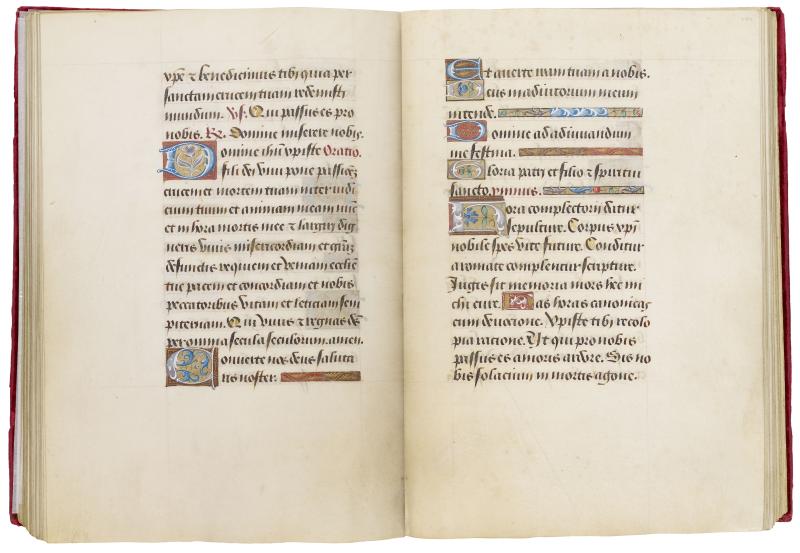 xp̄e ⁊ benedicimus tibi quia per
sanctam crucem tuam redemisti
mundum. Vs. Qui passus es pro
nobis. Rz. Domine miserere nobis.
Domine ih̄u xpiste Oratio.
fili dei viui pone passionē
crucem et mortem tuam inter iudi
cium tuum et animam meam nūc
et in hora mortis mee et largiri dig
neris viuis misericordiam et grām
defunctis requiem et veniam ecclesie
tue pacem et concordiam et nobis
peccatoribus vitam et leticiam sem
piternam. Qui viuis ⁊ regnas ds̄
per omnia secula seculorum. amen.
Conuerte nos deus saluta
ris noster.
Et auerte iram tuam a nobis.
Deus in adiutorium meum
intende.
Domine ad adiuuandum
me festina.
Gloria patri et filio et spiritui
sancto. ymnus.
Hora completorii datur
sepulture. Corpus xpi
nobile spes vite future. Conditur
aromate complentur scripture.
Iugis sit memoria mors hec mi
chi cure. Has horas canonicas
cum deuocione. Xpiste tibi recolo
pia racione. Ut qui pro nobis
passus es amoris ardore. Sis no
bis solacium in mortis agone.